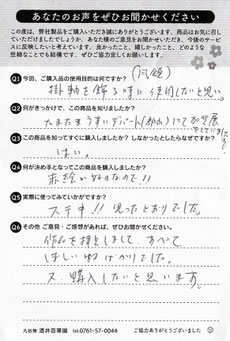 あなたのお声をぜひお聞かせください
この度は、弊社製品をご購入いただき誠にありがとうございます。商品はお気に召し
ていただけましたでしょうか。あなた様のご意見をお聞かせいただき、今後のサービ
スに反映したいと考えています。良かったこと、嬉しかったこと、どのような
些細なことでも結構です。ぜひご協力宜しくお願いします。
Q1 今回、ご購入品の使用目的は何ですか?
掛軸を飾る時に使用したいと思い。
Q2 何がきっかけで、この商品を知りましたか?
たまたまうすいデパート
Q3 この商品を知ってすぐに購入しましたか? しなかったとしたらなぜですか?
はい。
Q4 何が決め手となってこの商品を購入しましたか?
赤絵が好きなので!!
Q5 実際に使ってみていかがですか?
ステキ!! 思ったとおりでした。
Q6 その他 ご意見・ご感想があれば、ぜひお聞かせください。
作品を拝見しまして、すべて
ほしい物ばかりでした。
又、購入したいと思います。
九谷焼 酒井百華園 tel.0761-57-0044 ご協力ありがとうございました